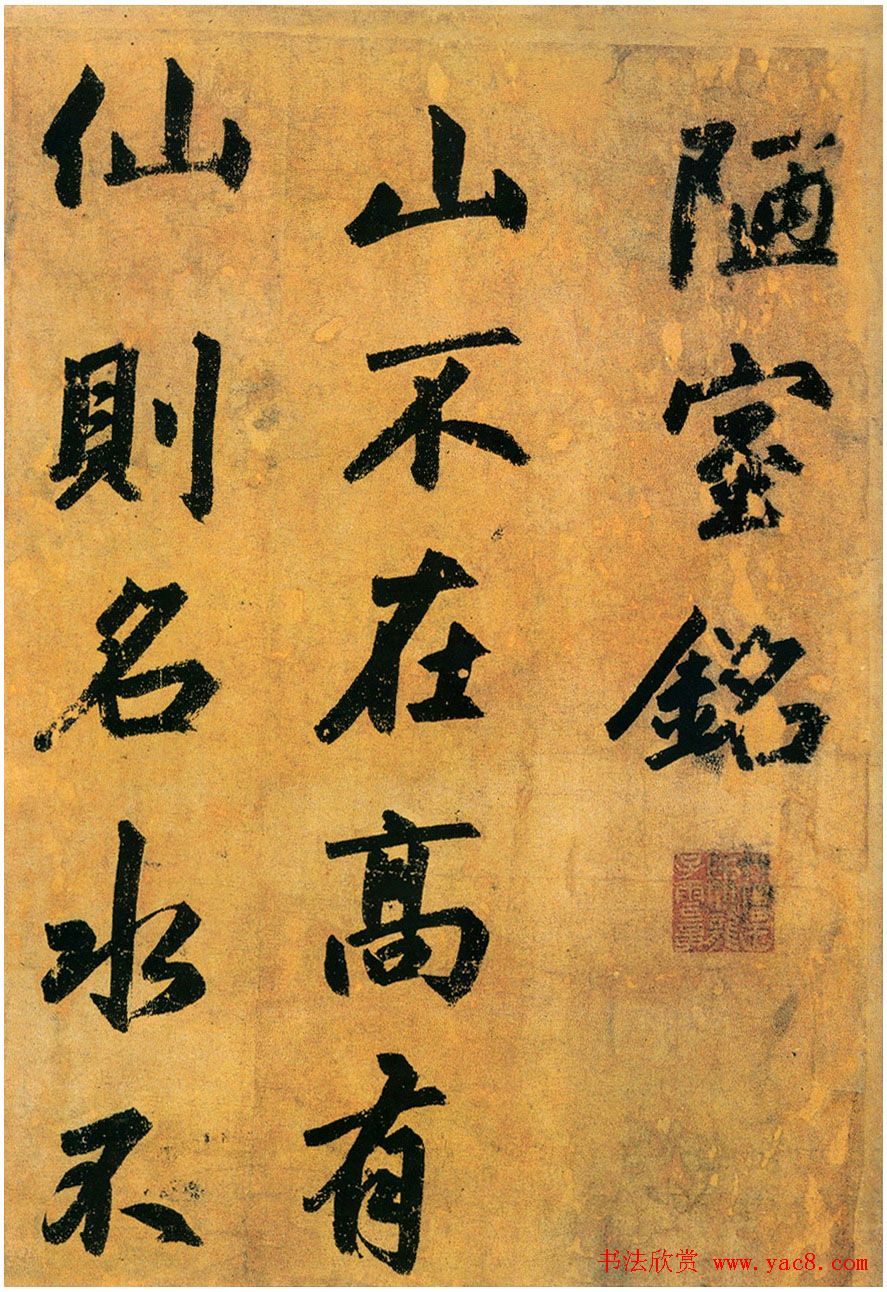 陋室銘
山不在高有
仙則名水不
书法欣赏 www.yac8.com